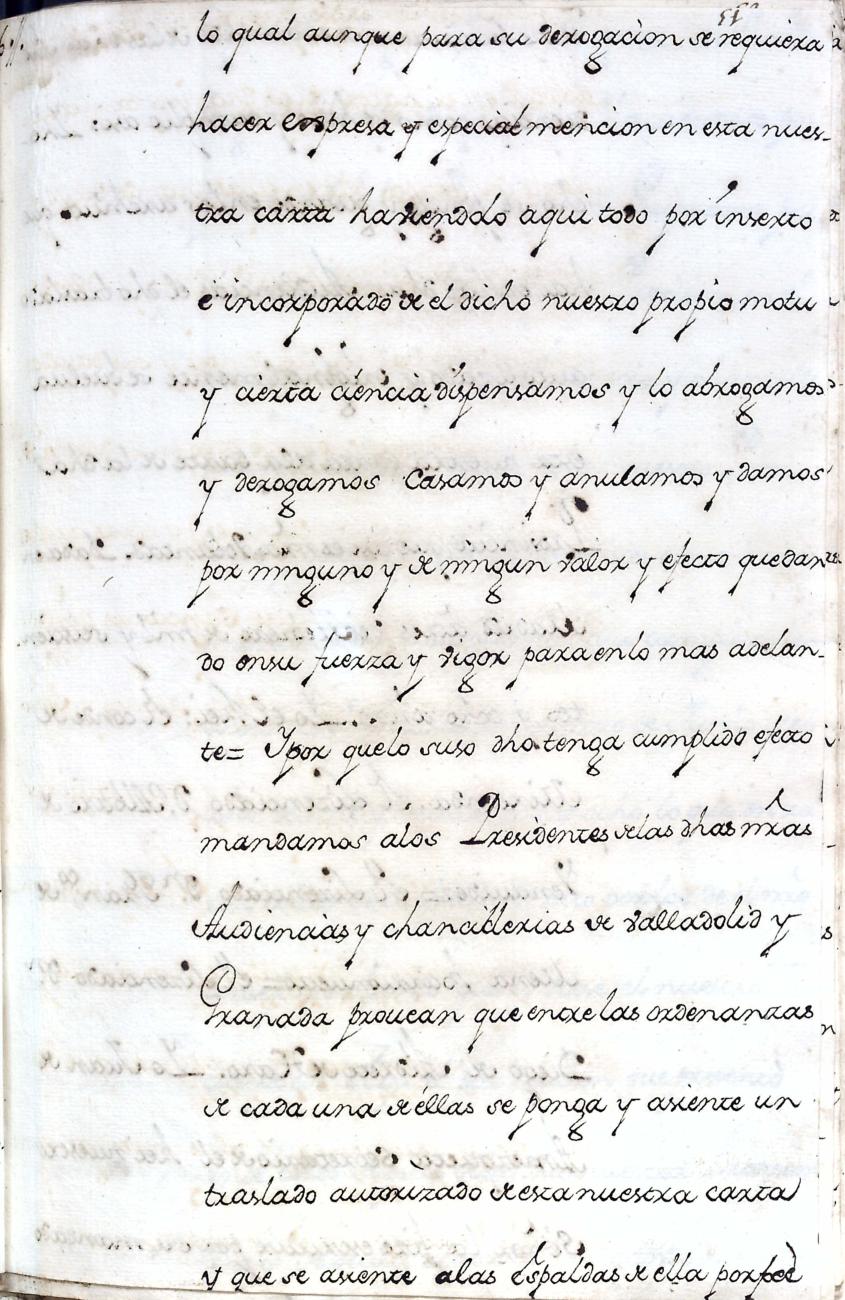 lo qual aunque para su derogacion se requiera
hacer expresa y especial mencion en esta nues-
tra carta haviendolo aqui todo por inserto
e incorporado de el dicho nuestro propio motu
y cierta ciencia dispensamos y lo abrogamos
y derogamos Casamos y anulamos y damos
por ninguno y de ningun valor y efecto quedan
do en su fuerza y vigor para en lo mas adelan-
te= Y por que lo suso dho tenga cumplido efecto
mandamos a los Presidentes de las dhas nras
Audiencias y chancillerias de Valladolid y
Granada provean que entre las ordenanzas
de cada una de ellas se ponga y asiente un
traslado autorizado de esta nuestra carta
y que se asiente a las Espaldas de ella por fee